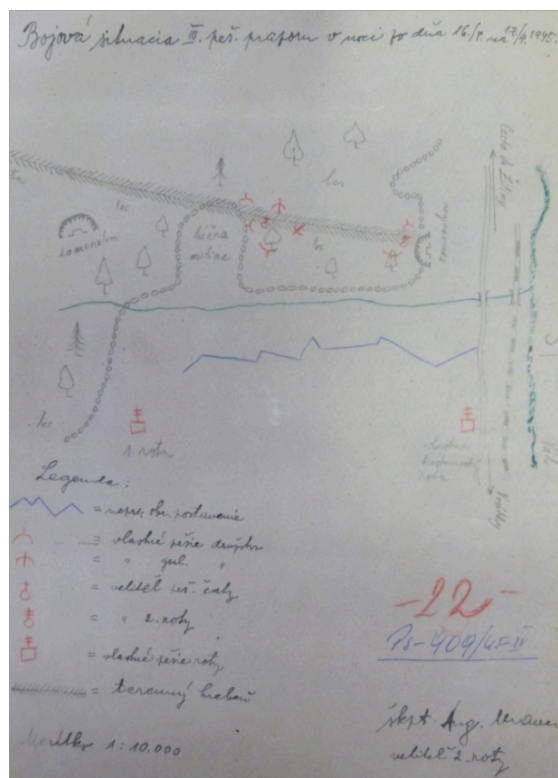 Bojová situacia III. peš. praporu v noci zo dňa 16./4. na 17/4. 1945.
Cesta do Žiliny
les
les
lomenolom
lúčna
mítina
les
les
1. rota
vlastná
rota
Legenda:
= nepr. obr. postavenie
= vlastné pešie družstvo
= " gul. "
= veliteľ peš. čaty
= " 2. roty
= vlastné pešie roty
= terenný hrebeň
Merítko 1:10.000
-22-
Ps-409/45-IV
škpt. Aug.
veliteľ 2. roty